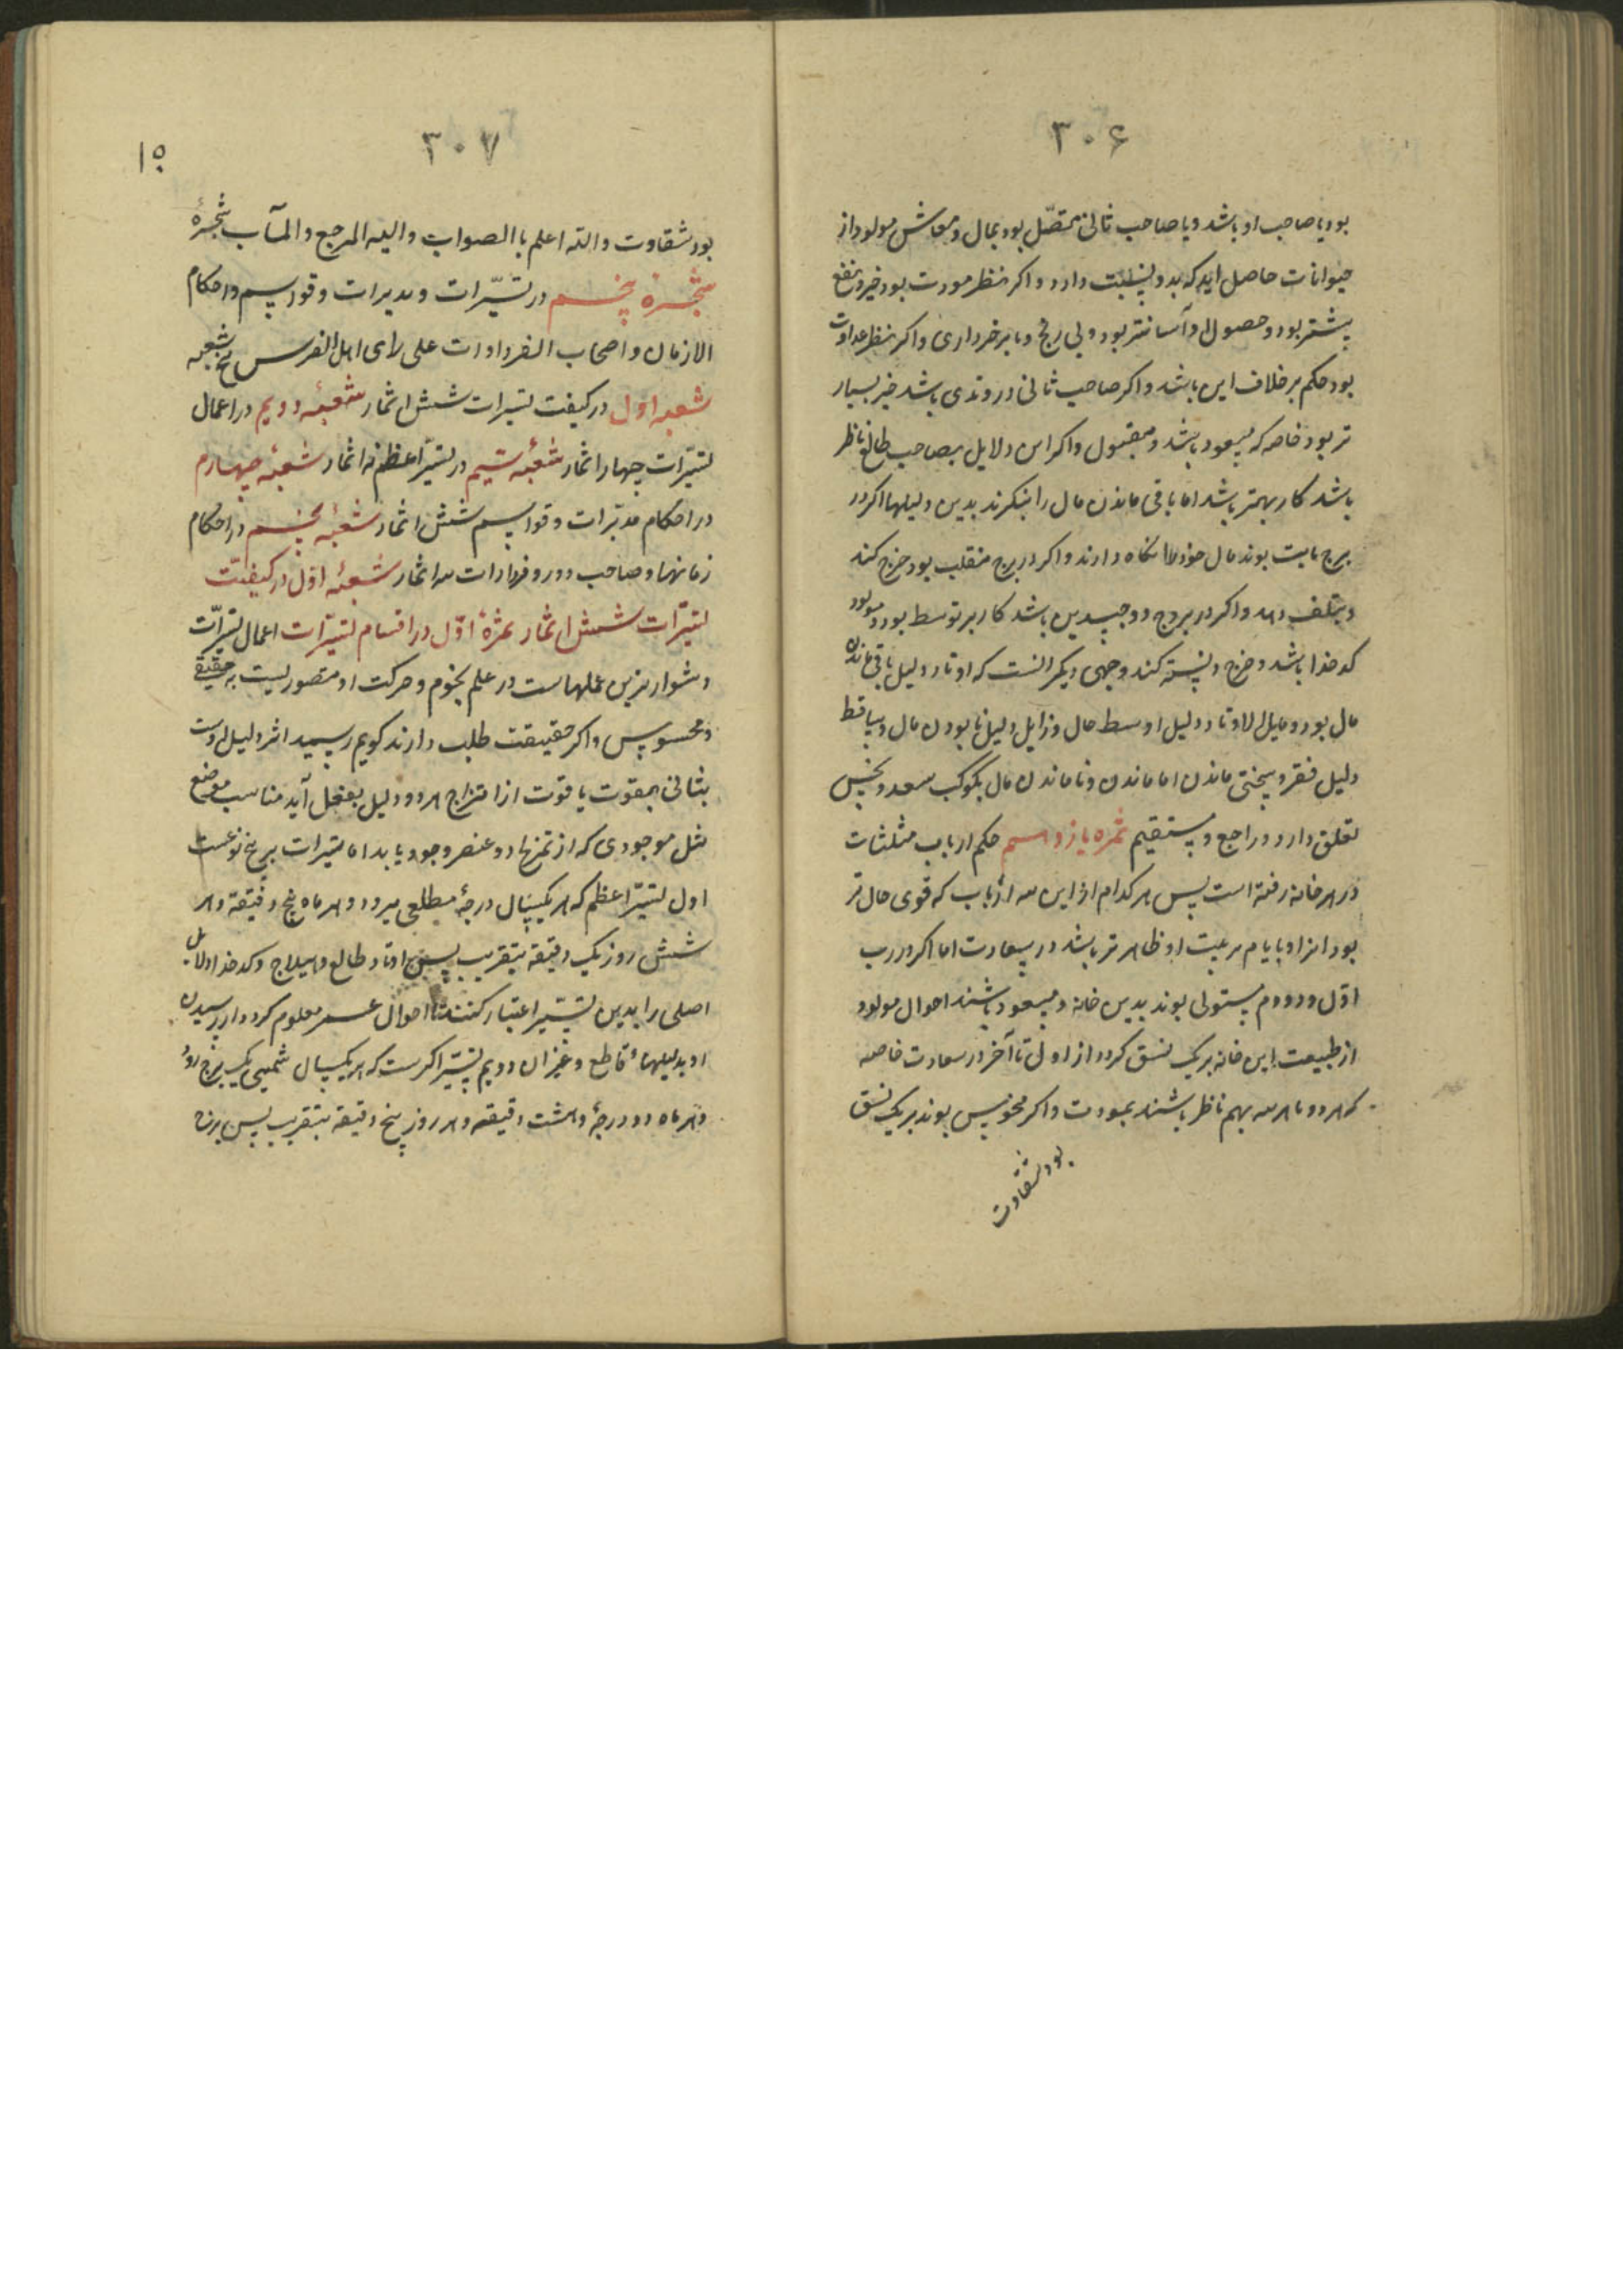 ۳۰۶
بود یا صاحب او باشد و یا صاحب ثانی متصّل بود بمال و معاش مولود از
حیوانات حاصل اید که بدو نسبت دارد و اکر بنظر مودت بود خیر و نفع
بیشتر بود و حصول او آسانتر بود و بی رنج و با برخورداری و اکر بنظر عداوت
بود حکم بر خلاف این باشد و اکر صاحب ثانی در وتدی باشد خیر بسیار
تر بود خاصه که مسعود باشد و مقبول و اکر این دلایل بصاحب طالع ناظر
باشد کار بهتر باشد اما باقی ماندن مال را بنکرند بدین دلیلها اکر در
برج ثابت بوند مال خود را نکاه دارند و اکر در برج منقلب بود خرج کند
و بتلف دهد و اکر در بروج دو جسدین باشد کار بر توسط بود و مولود
کدخدا باشد و خرج دانسته کند وجهی دیکر انست که اوتاد دلیل باقی ماندن
مال بود و مایل الاوتاد دلیل اوسط حال و زایل دلیل نابودن مال و ساقط
دلیل فقر و سختی ماندن اما ماندن و نا ماندن مال بکوکب سعد و نحس
تعلق دارد و راجع و مستقیم ثمره یازدهم حکم ارباب مثلثات
در هر خانه رفته است پس هر کدام از این سه ارباب که قوی حال تر
بود انرا و بایام مرعیت او ظاهر تر باشد در سعادت اما اکر در رب
اوّل و دووم مستولی بوند بدین خانه و مسعود باشند احوال مولود
از طبیعت این خانه بر یک نسق کردد از اول تا آخر در سعادت خاصه
که هر دو یا هر سه بهم ناظر باشند بمودت و اکر منحوس بوند بر یک نسق
بود شقاوت
۳۰۷
۱۵
بود شقاوت والله اعلم باالصواب والیه المرجع والمآب شجرهٔ
شجرهٔ پنجم در تسیّرات و مدیرات و قواسیم و احکام
الازمان و اصحاب الفردارات علی رای اهل الفرس پنج شعبه
شعبه اول در کیفیت تسیرات شش اثمار شعبهٔ دویم در اعمال
تسیّرات چهار اثمار شعبهٔ سیم در تسیّر اعظم نه اثمار شعبهٔ چهارم
در احکام مدبّرات و قواسیم شش اثمار شعبهٔ پنجم در احکام
زمانها و صاحب دور و فردارات سه اثمار شعبهٔ اوّل در کیفیّت
تسیّرات شش اثمار ثمرهٔ اوّل در اقسام تسیّرات اعمال تسیّرات
دشوارترین عملهاست در علم نجوم و حرکت او متصور نیست به حقیقی
و محسوس و اکر حقیقت طلب دارند کویم رسید اثر دلیل اوست
بثانی بقوت یا قوت از امتزاج هر دو دلیل بفعل آید مناسب موضع
مثل موجودی که از تمزج دو عنصر وجود یابد اما تسیرات بر پنج نوعست
اول تسیّر اعظم که هر یکسال درجهٔ مطلعی میرود و هر ماه پنج دقیقه و هر
شش روز یک دقیقه بتقریب پس اوتاد طالع و هیلاج و کدخدا و دلایل
اصلی را بدین تسیّر اعتبار کنند تا احوال عمر معلوم کردد از رسیدن
او بدلیلهاء قاطع و غیر ان دویم تسیّر اکبرست که هر یکسال شمسی یک برج رود
و هر ماه دو درجهٔ و هشت دقیقه و هر روز پنج دقیقه بتقریب پس برج